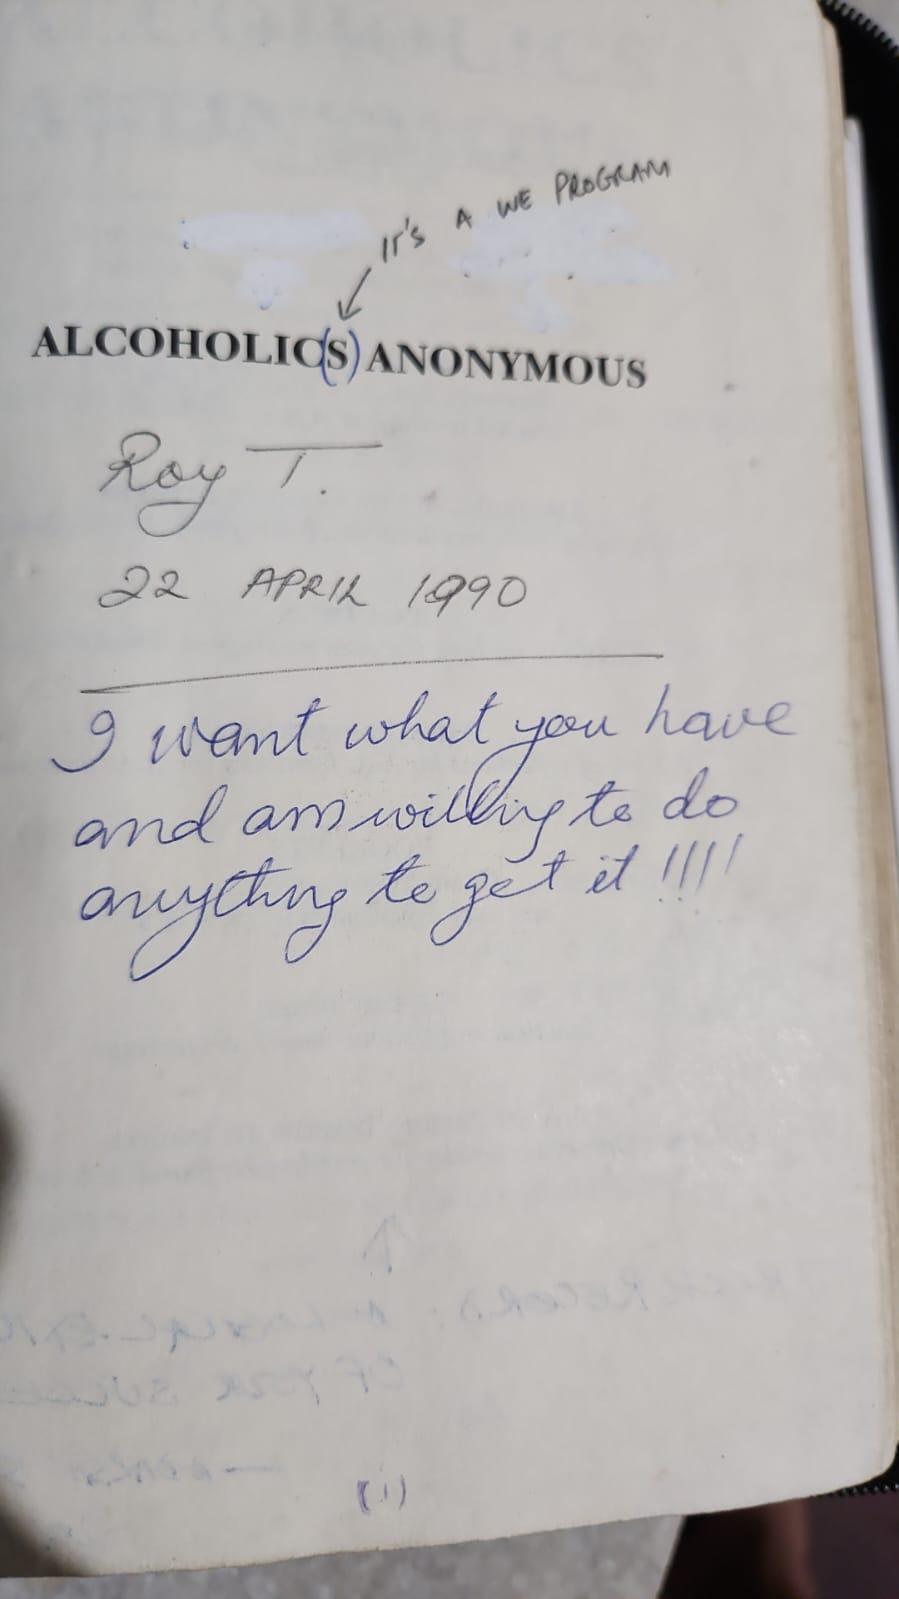 IT'S A WE PROGRAM
ALCOHOLIC(S) ANONYMOUS
Roy T.
22 APRIL 1990
I want what you have
and am willing to do
anything to get it !!!!
(1)